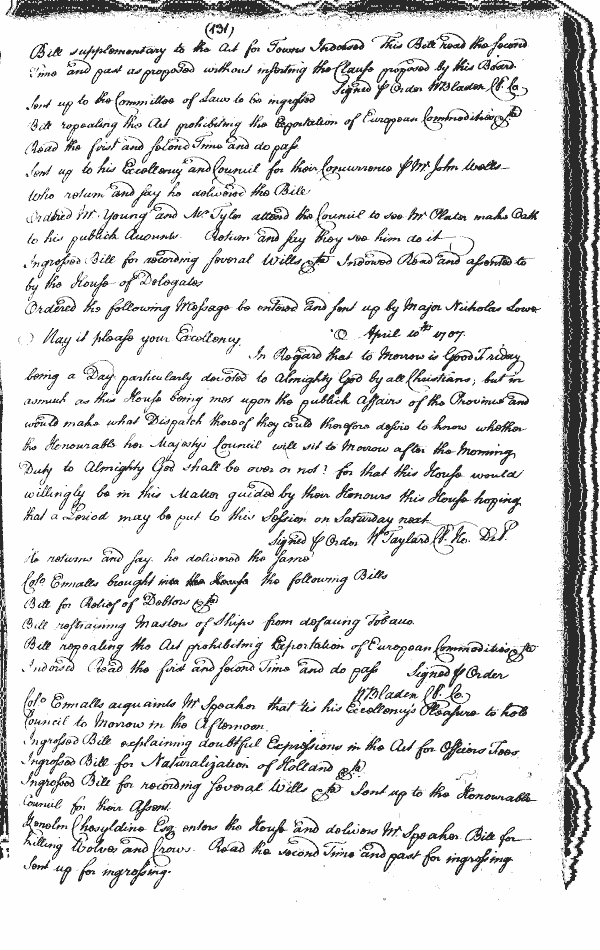 (131)
Bill supplementary to the Act for Towns Indorsed This Bill read the second
Time and past as proposed without inserting the Clause proposed by this Board.
Signed p Order WBladen Cl. Co.
Sent up to the Committee of Laws to be ingrossed
Bill repealing the Act prohibiting the Exportation of European Commodities &ca
Read the first and second Time and do pass
Sent up to his Excellency and Council for their Concurrence p Mr John Wells
Who return and say he delivered the Bill
Ordered Mr Young and Mr Tyler attend the Council to see Mr Plater make Oath
to his publick Accounts. Return and say they see him do it
Ingrossed Bill for recording several Wills &ca Indorsed Read and assented to
by the House of Delegates
Ordered the following Message be entered and sent up by Major Nicholas Lowe
May it please your Excellency April 10th 1707.
In Regard that to Morrow is Good Friday
being a Day particularly devoted to Almighty God by all Christians; but in
asmuch as this House being met upon the publick Affairs of the Province and
would make what Dispatch thereof they could therefore desire to know whether
the Honourable her Majesty's Council will sit to Morrow after the Morning
Duty to Almighty God shall be over or not? for that this House would
willingly be in this Matter guided by their Honours this House hoping
that a Period may be put to this Session on Saturday next
Signed p Order Wm Taylard Cl. Ho. Del.
He returns and say he delivered the same
Colo Ennalls brought into the House the following Bills
Bill for Relief of Debtors &ca
Bill restraining Masters of Ships from defacing Tobacco
Bill repealing the Act prohibiting Exportation of European Commodities &ca
Indorsed Read the first and second Time and do pass Signed p Order
WBladen Cl. Co.
Colo Ennalls acquaints Mr Speaker that 'tis his Excellency's Pleasure to hold
Council to Morrow in the Afternoon
Ingrossed Bill explaining doubtful Expressions in the Act for Officers Fees
Ingrossed Bill for Naturalization of Holland &ca
Ingrossed Bill for recording several Wills &ca Sent up to the Honourable
Council for their Assent
Kenelm Cheseldine Esq enters the House and delivers Mr Speaker Bill for
killing Wolves and Crows. Read the second Time and past for ingrossing
Sent up for ingrossing.